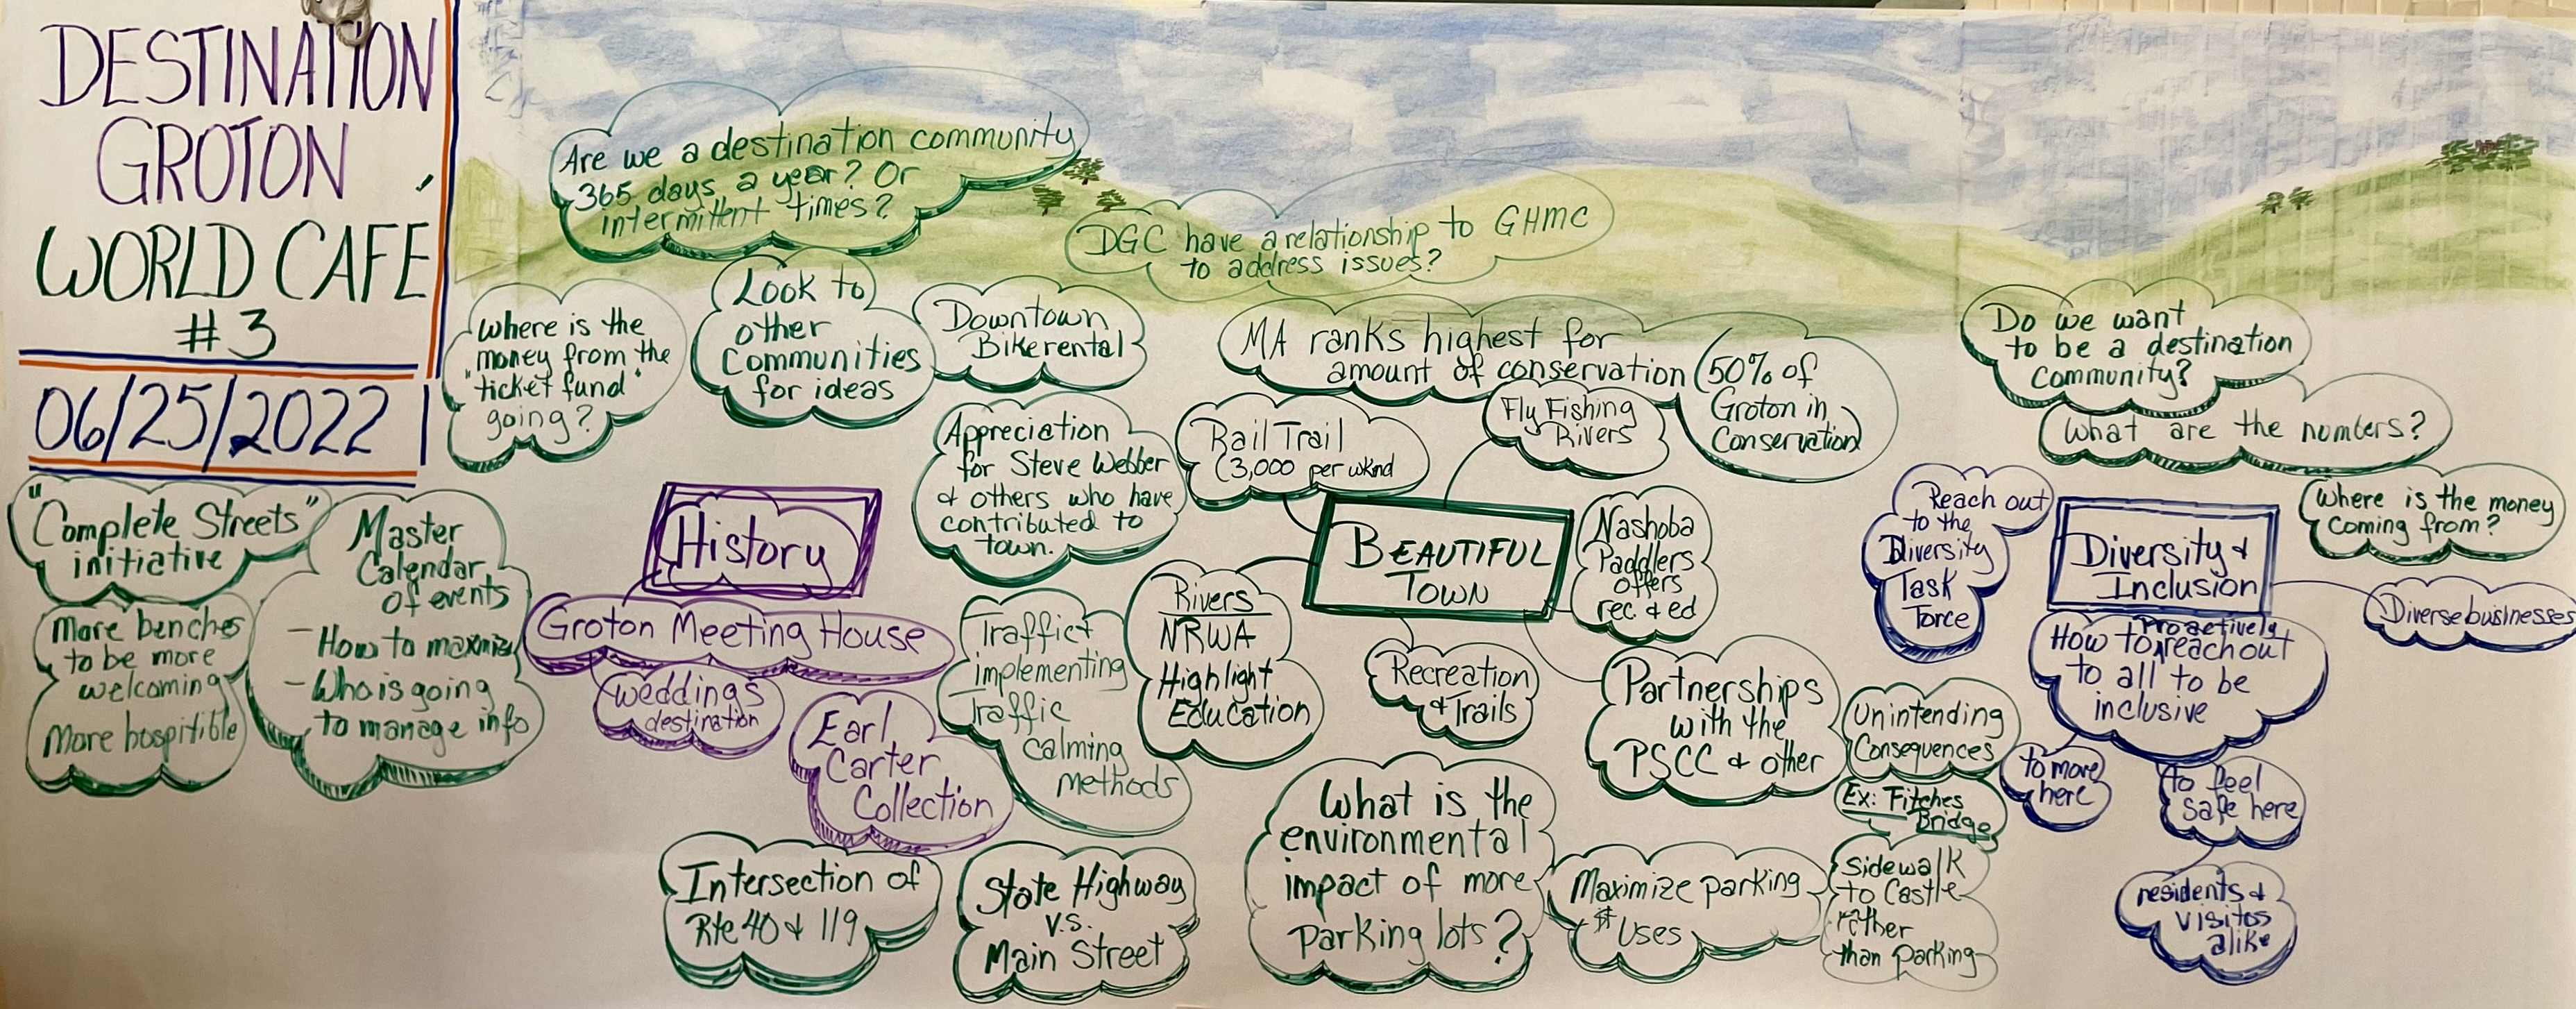 DESTINATION
GROTON
WORLD CAFE
#3
06/25/2022
"Complete Streets"
initiative
More benches
to be more
welcoming
More hospitible
Master
Calendar
of events
- How to maxmize
- Who is going
to manage info
Where is the
money from the
"ticket fund"
going?
Are we a destination community
365 days a year? Or
intermittent times?
Look to
other
Communities
for ideas
Downtown
Bike rental
DGC have a relationship to GHMC
to address issues?
MA ranks highest for
amount of conservation
50% of
Groton in
Conservation
Appreciation
for Steve Webber
& others who have
contributed to
town.
Rail Trail
(3,000 per wknd
Fly Fishing
Rivers
History
Groton Meeting House
weddings
destination
Earl
Carter
Collection
Traffic +
implementing
traffic
calming
methods
Intersection of
Rte 40 & 119
State Highway
v.s.
Main Street
BEAUTIFUL
TOWN
Rivers
NRWA
Highlight
Education
Recreation
& Trails
Nashoba
Paddlers
offers
rec & ed
Partnerships
with the
PSCC & other
What is the
environmental
impact of more
parking lots?
Maximize parking
Uses
Unintending
Consequences
Ex: Fitches
Bridge
Sidewalk
to Castle
rather
than parking
Do we want
to be a destination
community?
What are the numbers?
Where is the money
coming from?
Reach out
to the
Diversity
Task
Force
Diversity &
Inclusion
Diverse businesses
How to proactively reach out
to all to be
inclusive
to more
here
to feel
safe here
residents &
visitos
alike